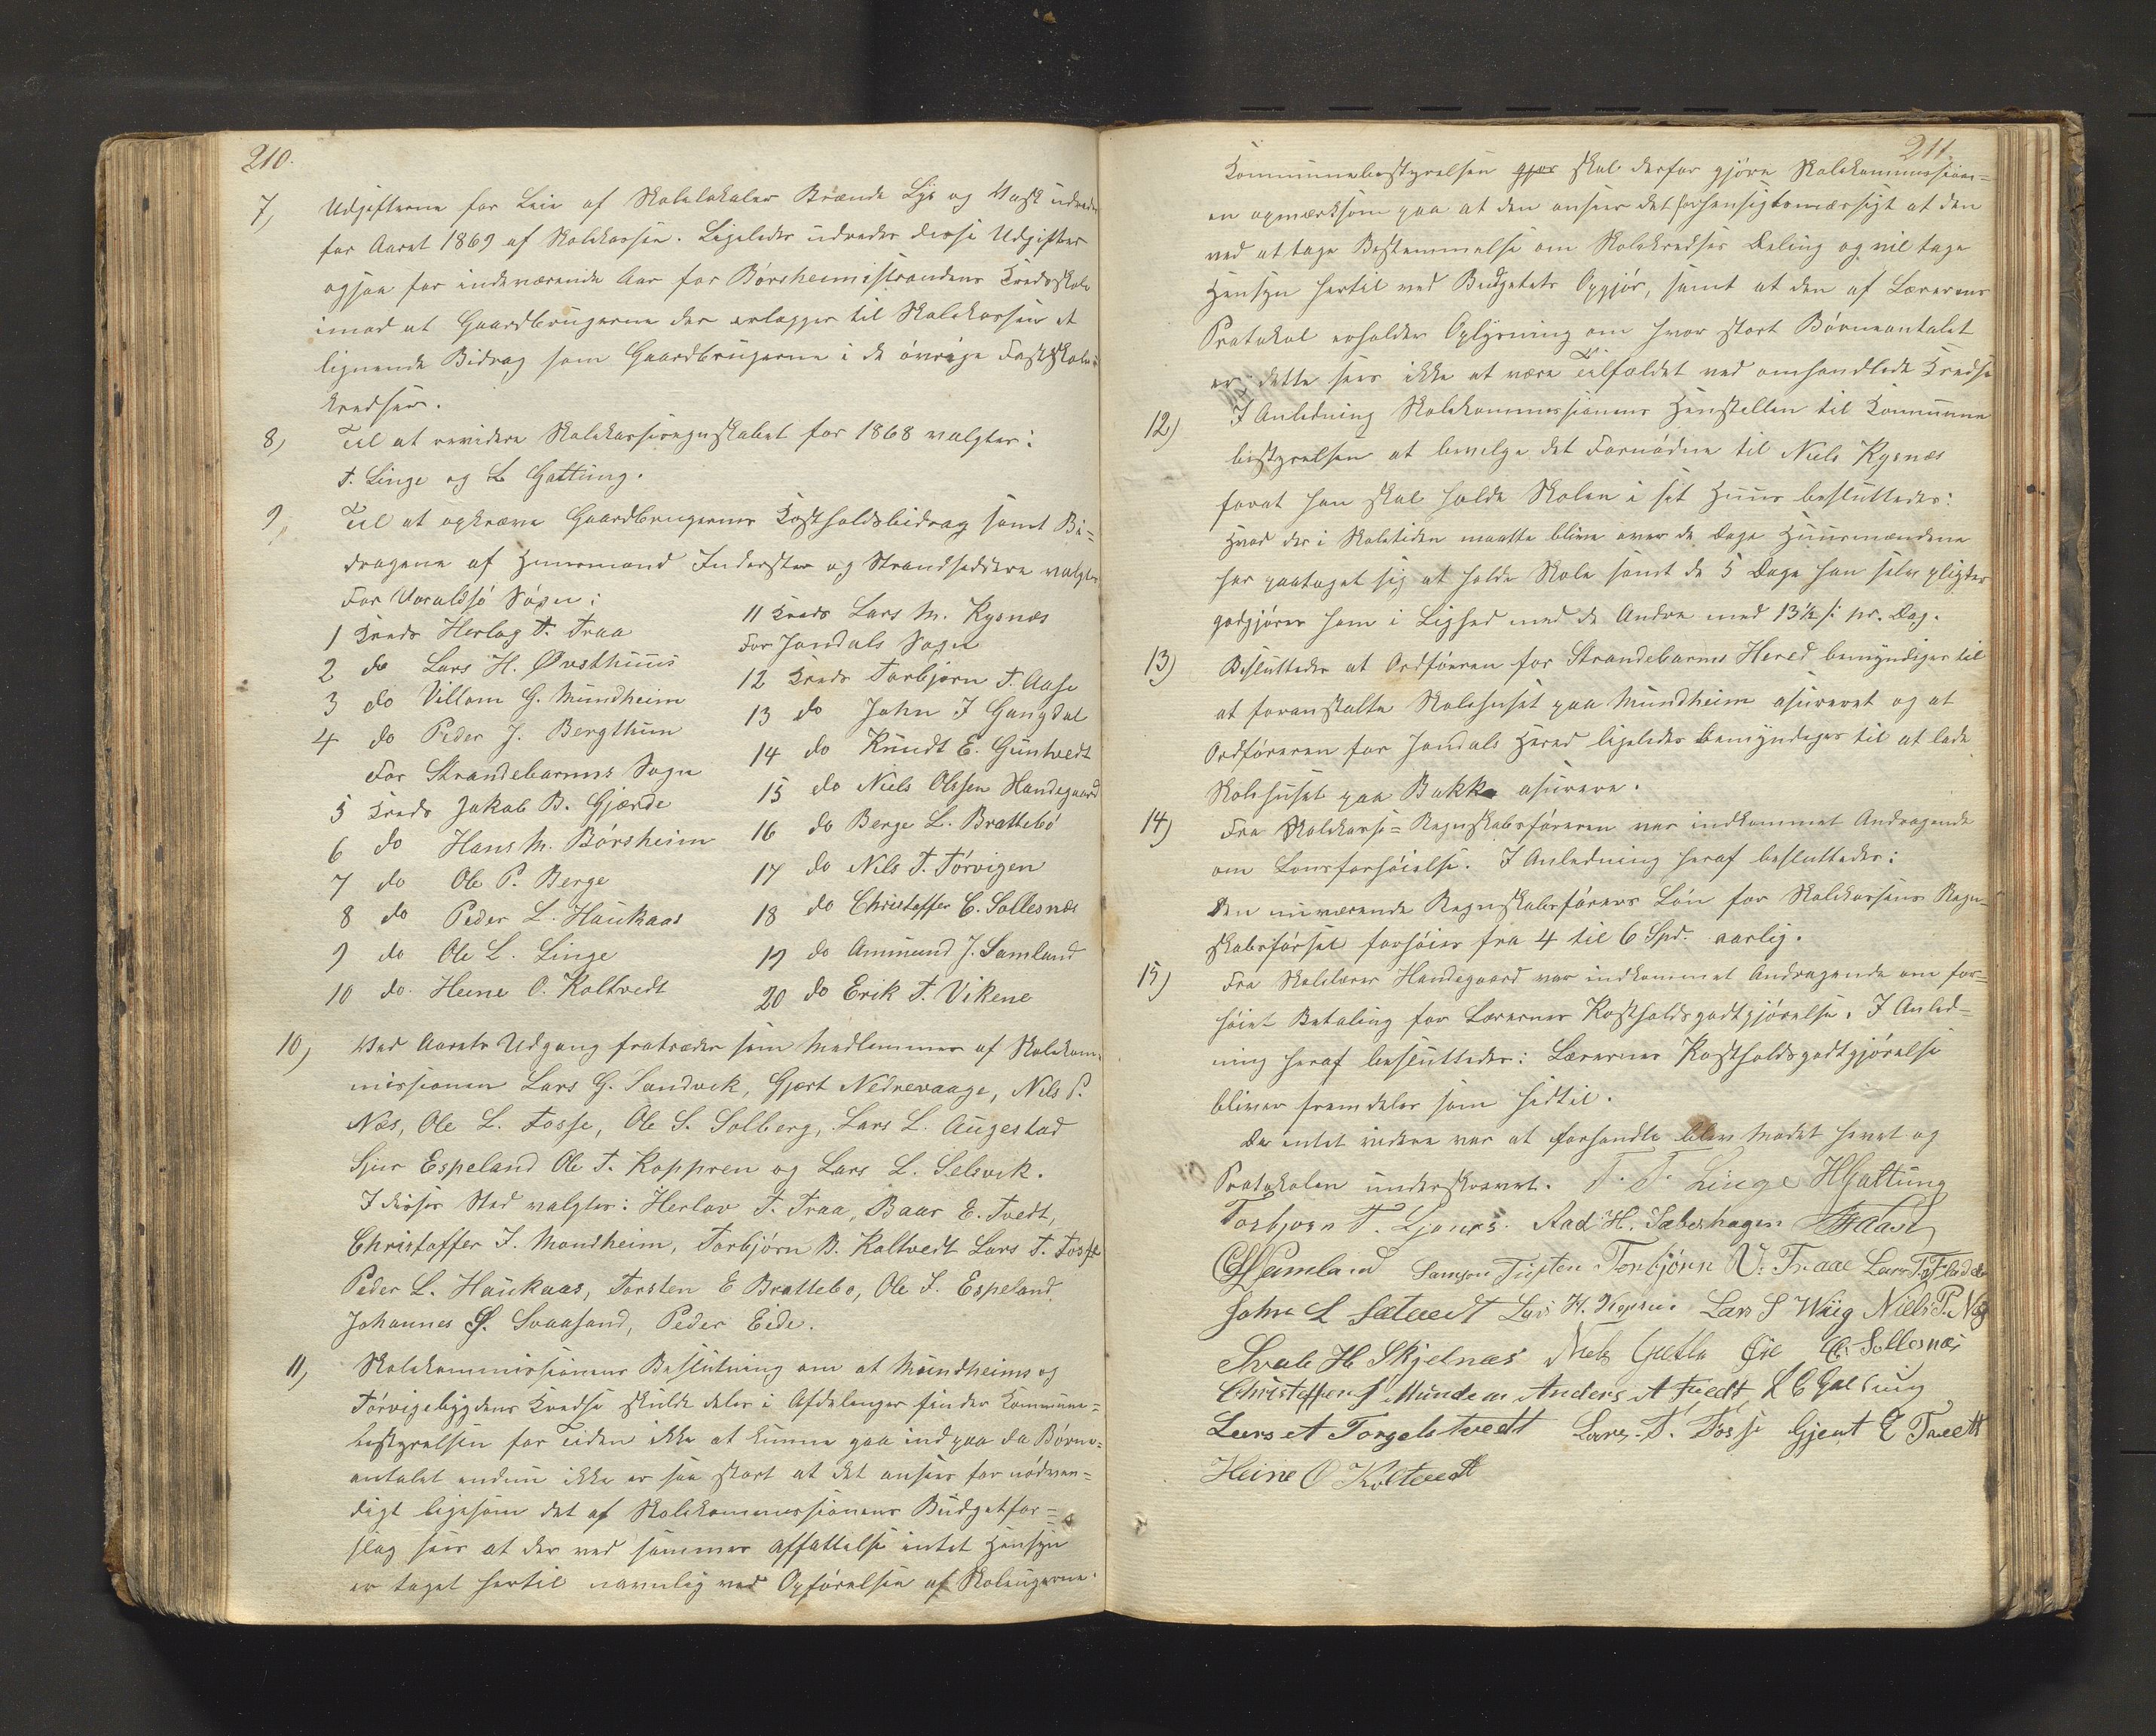 210.
7, Udgifterne for Leie af Skolelokaler Brænde Lys og Vask udredes
for Aaret 1869 af Skolekassen. Ligeledes udredes disse Udgifter
ogsaa for indeværende Aar for Börsheimstrandens Kredsskole
imod at Gaardbrugerne der erlægger til Skolekassen et
lignende Bidrag som Gaardbrugerne i de övrige Fastskole-
kredser.
8, Til at revidere Skolekasseregnskabet for 1868 valgtes:
T. Linge og L Gattung.
9, Til at opkræve Gaardbrugernes Kostholdsbidrag samt Bi=
dragene af Huusmænd Inderster og Strandsiddere valgtes
For Varaldsö Sogn:
1 Kreds Herlag T. Traa
2 do Lars H. Øvsthuus
3 do Villom G. Mundheim
4 do Peder J. Bergthun
For Strandebarms Sogn
5 Kreds Jakob B. Gjærde
6 do Hans M. Börsheim
7 do Ole P. Berge
8 do Peder L. Haukaas
9 do Ole L. Linge
10 do. Heine O. Koltvedt
11 Kreds Lars M. Kysnæs
For Jondals Sogn
12 Kreds Torbjørn T. Aase
13 do John J Gangdal
14 do Knudt E. Guntvedt
15 do Niels Olssen Handegaard
16 do Berge L. Brattebö
17 do Nils T. Törvigen
18 do Christoffer C. Sollesnæs
19 do Ammund J. Samland
20 do Erik T. Vikene
10, Ved Aarets Udgang fratræder som Medlemmer af Skolekom-
missionen Lars G. Sandvik, Gjert Nedrevaage, Nils P.
Næs, Ole L. Fosse, Ole S. Solberg, Lars L. Augestad
Sjur Espeland Ole T. Koppren og Lars L. Selsvik.
I disses Sted valgtes: Herlov T. Traa, Baar E. Tvedt,
Christoffer J. Mondheim, Torbjörn B. Koltvedt Lars T. Fosse
Peder L. Haukaas, Torsten E Brattebo, Ole S. Espeland
Johannes S. Svaasand, Peder Eide.
11, Skolekommissionens Beslutning om at Mundheims og
Törvigebygdens Kredse skulde deles i Afdelinger finder Kommune=
bestyrelsen for Tiden ikke at kunne gaa ind paa da Börne=
antalet endnu ikke er saa stort at det ansees for nödven=
digt ligesom det af Skolekommissionens Budgetfor=
slag sees at der ved sammes Affattelse intet Hensyn
er taget hertil navnlig ved Opförelsen af Skoleugerne.
211.
Kommunebestyrelsen gjør skal derfor gjöre Skolekommission=
en opmærksom paa at den anseer det hensigtsmæssigt at den
ved at tage Bestemmelse om Skolekredses Deling og vil tage
Hensyn hertil ved Budgetets Opgjör, samt at den af Lærernes
Protokol erholder Oplysning om hvor stort Börneantalet
er dette sees ikke at være Tilfældet ved omhandlede Kredse
12) I Anledning Skolekommissionens Henstillen til Kommune
bestyrelsen at bevilge det Fornödne til Niels Kysnæs
forat han skal holde Skolen i sit Huus besluttedes:
Hvad der i Skoletiden maatte blive over de Dage Huusmændene
har paataget sig at holde Skole samt de 5 Dage han selv pligter
godgjöres ham i Lighed med de Andre med 13½ s: pr. Dag.
13) Besluttedes at Ordföreren for Strandebarms Hered bemyndiges til
at foranstalte Skolehuset paa Mundheim asureret og at
Ordföreren for Jondals Hered ligeledes bemyndiges til at lade
Skolehuset paa Bakke asurere.
14) Fra Skolekasse=Regnskabsföreren var indkommet Andragende
om Lönsforhöielse. I Anledning heraf besluttedes:
Den nuværende Regnskabsförers Lön for Skolekassens Regn=
skabsförsel forhöies fra 4 til 6 Spd. aarlig.
15) Fra Skolelærer Handegaard var indkommet Andragende om for=
höiet Betaling for Lærernes Kostholdsgodtgjörelse. I Anled=
ning heraf besluttedes: Lærernes Kostholdsgodtgjörelse
bliver fremdeles som hidtil.
Da intet videre var at forhandle blev Mødet hævet og
Protokolen underskrevet. T. T. Linge HGattung
Torbjørn T. Ljones. Aad H. Sæbershagen
Samland Samson Tuften Torbjörn V. Traae Lars T. Fladebø
John L Sætvedt Lars H. Kopren. Lars S Wiig Niels P. Næs
Svale H Skjelnæs Niels Gutla Ole C. Sollesnæs
Christoffer J Mundem Anders A Tvedt L C Gattung
Lars A Torgelstveedt Lars. T. Fosse Gjert E Tvedt
Heine O Koltvedt